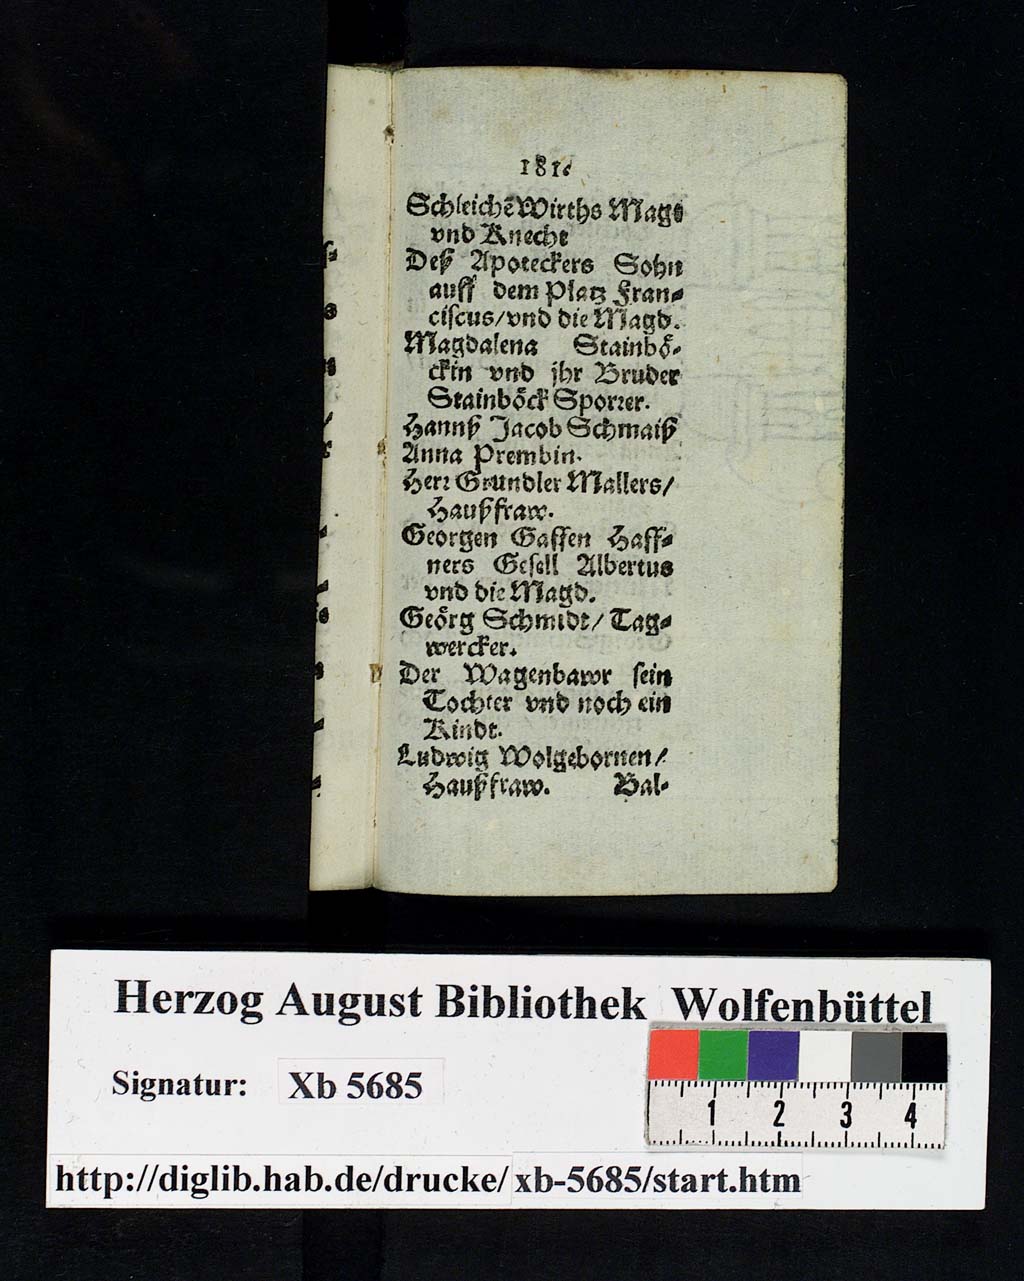 181.
Schleichẽ Wirths Magd
vnd Knecht
Deß Apoteckers Sohn
auff dem Platz Fran⸗
ciscus/vnd die Magd.
Magdalena Stainbö⸗
ckin vnd jhr Bruder
Stainböck Sporrer.
Hannß Jacob Schmaiß
Anna Prembin.
Herr Grundler Mallers/
Haußfraw.
Georgen Gassen Haff⸗
ners Gesell Albertus
vnd die Magd.
Geörg Schmidt/ Tag⸗
wercker.
Der Wagenbawr sein
Tochter vnd noch ein
Kindt.
Ludwig Wolgebornen/
Haußfraw. Bal⸗
Herzog August Bibliothek Wolfenbüttel
Signatur: Xb 5685
1 2 3 4
http://diglib.hab.de/drucke/xb-5685/start.htm